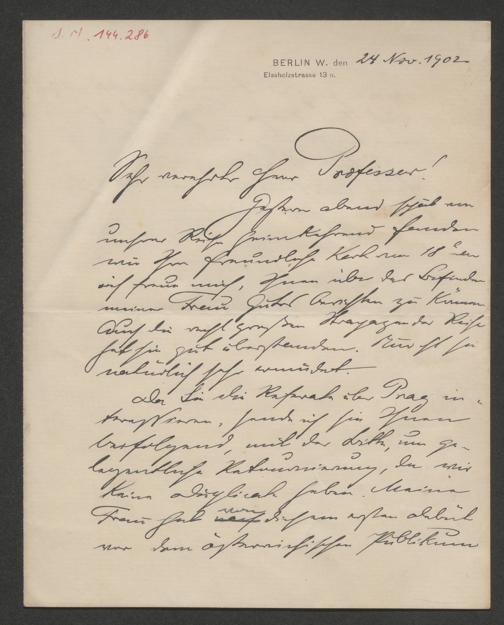 J. N. 144.286
BERLIN W. den 24 Nov. 1902
Elssholzstrasse 13 II.
Sehr verehrter Herr Professor!
Gestern abend spät von
unserer Reise heimkehrend fanden
wir Ihre freundliche Karte vom 18ten
ich freue mich, Ihnen über das Befinden
meiner Frau Gutes berichten zu können
Auch die recht großen Strapazen der Reise
hat sie gut überstanden. Nur ist sie
natürlich sehr ermüdet.
Da Sie die Referate über Prag in-
teressieren, sende ich sie Ihnen
beifolgend, mit der Bitte, um ge-
legentliche Retournierung, da wir
keine Duplicate haben. Meine
Frau hat von diesem ersten Debüt
vor dem österreichischen Publikum